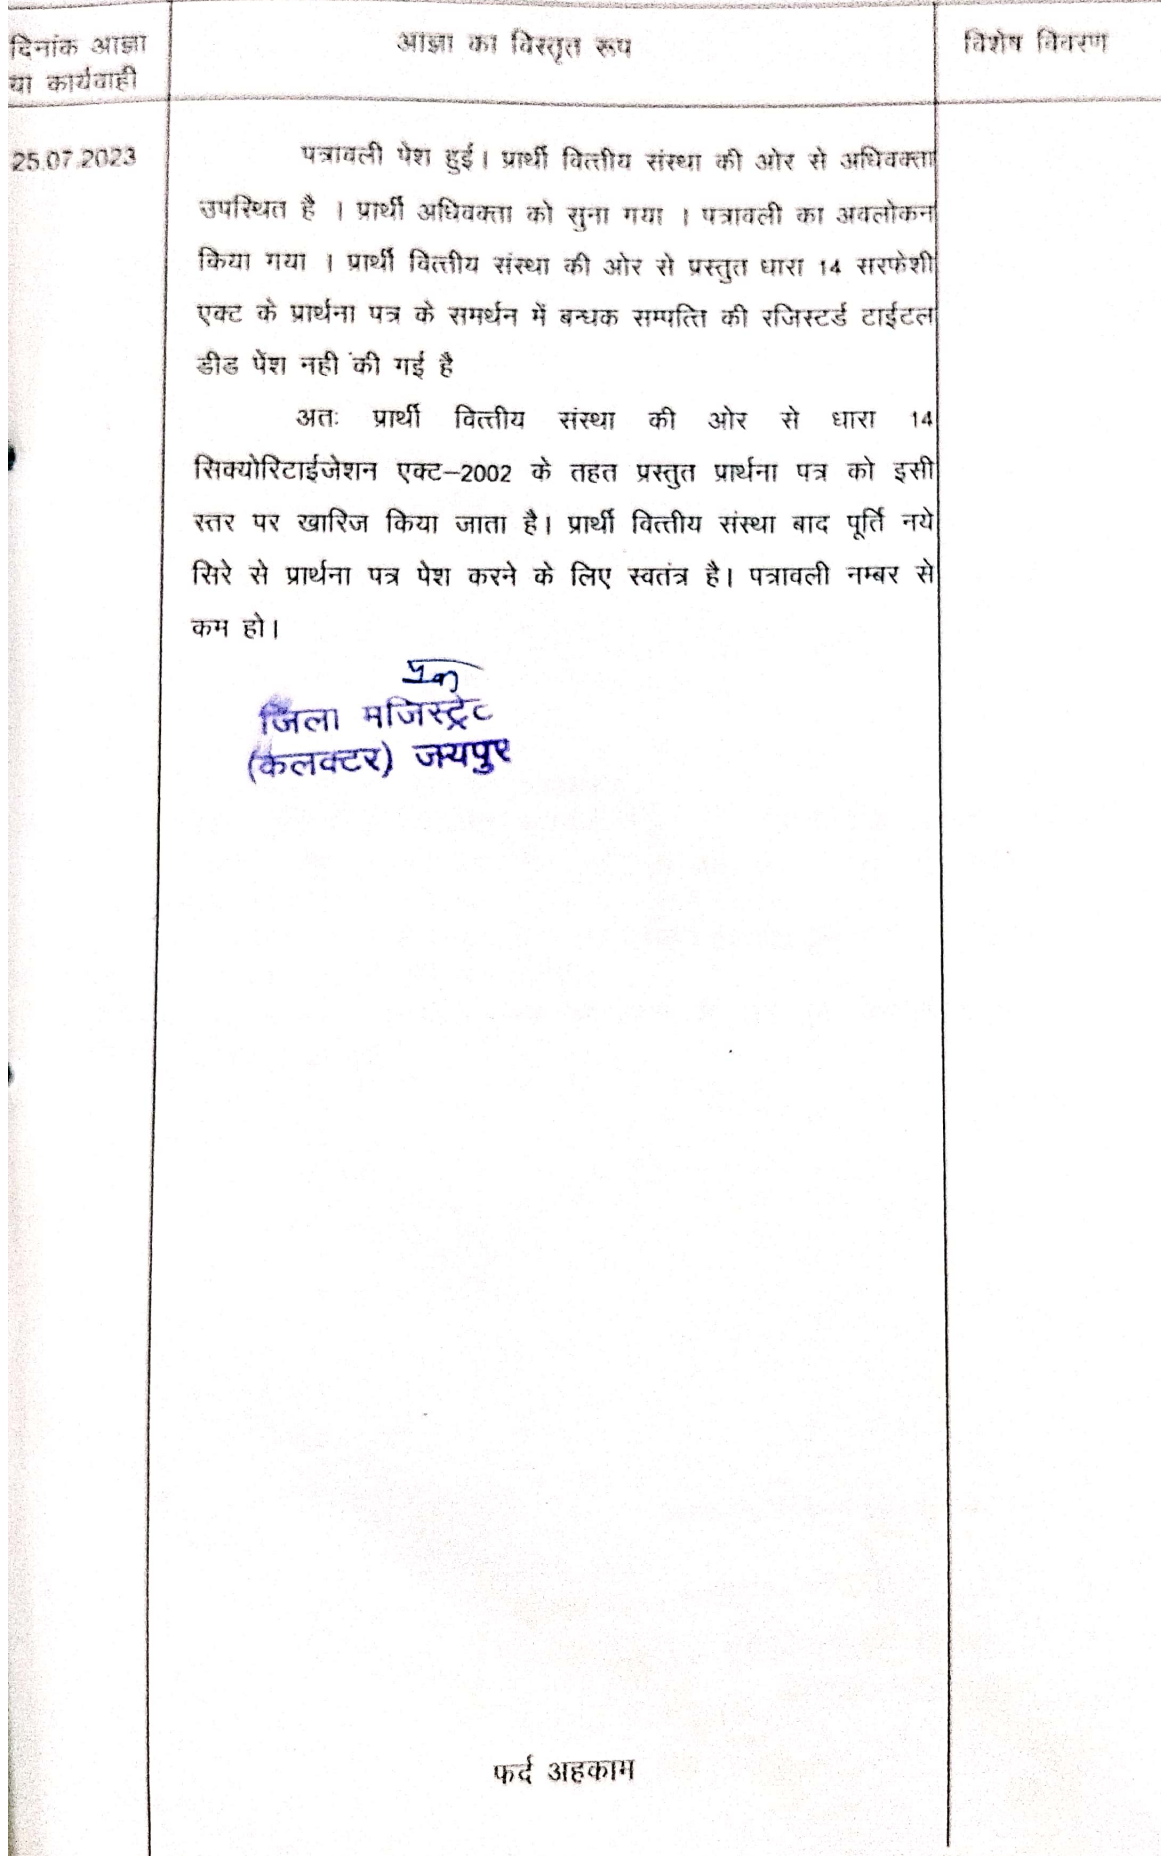 दिनांक आज्ञा आज्ञा का विस्तृत रूप विशेष विवरण
या कार्यवाही
25.07.2023 पत्रावली पेश हुई। प्रार्थी वित्तीय संस्था की ओर से अधिवक्ता
उपस्थित है । प्रार्थी अधिवक्ता को सुना गया । पत्रावली का अवलोकन
किया गया । प्रार्थी वित्तीय संस्था की ओर से प्रस्तुत धारा 14 सरफेशी
एक्ट के प्रार्थना पत्र के समर्थन में बन्धक सम्पत्ति की रजिस्टर्ड टाईटल
डीड पेश नही की गई है
अतः प्रार्थी वित्तीय संस्था की ओर से धारा 14
सिक्योरिटाईजेशन एक्ट–2002 के तहत प्रस्तुत प्रार्थना पत्र को इसी
स्तर पर खारिज किया जाता है। प्रार्थी वित्तीय संस्था बाद पूर्ति नये
सिरे से प्रार्थना पत्र पेश करने के लिए स्वतंत्र है। पत्रावली नम्बर से
कम हो।
जिला मजिस्ट्रेट
(कलक्टर) जयपुर
फर्द अहकाम